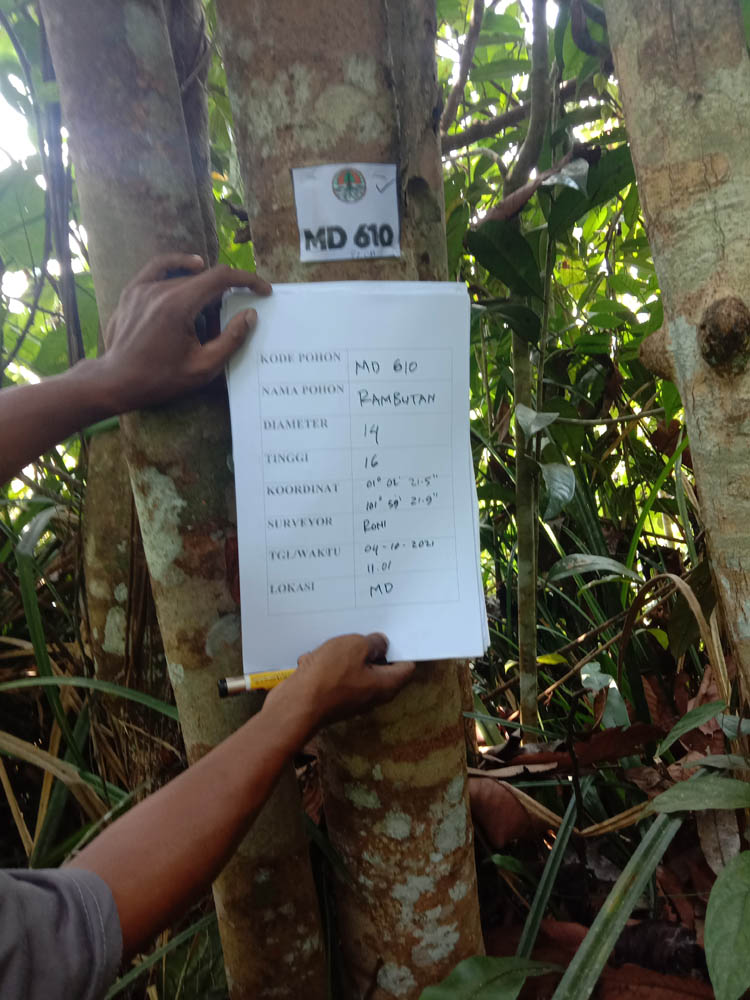 MD 610
KODE POHON MD 610
NAMA POHON RAMBUTAN
DIAMETER 14
TINGGI 16
KOORDINAT 01° 02' 21.5"
101° 59' 21.9"
SURVEYOR RONI
TGL/WAKTU 04-10-2021
11.01
LOKASI MD